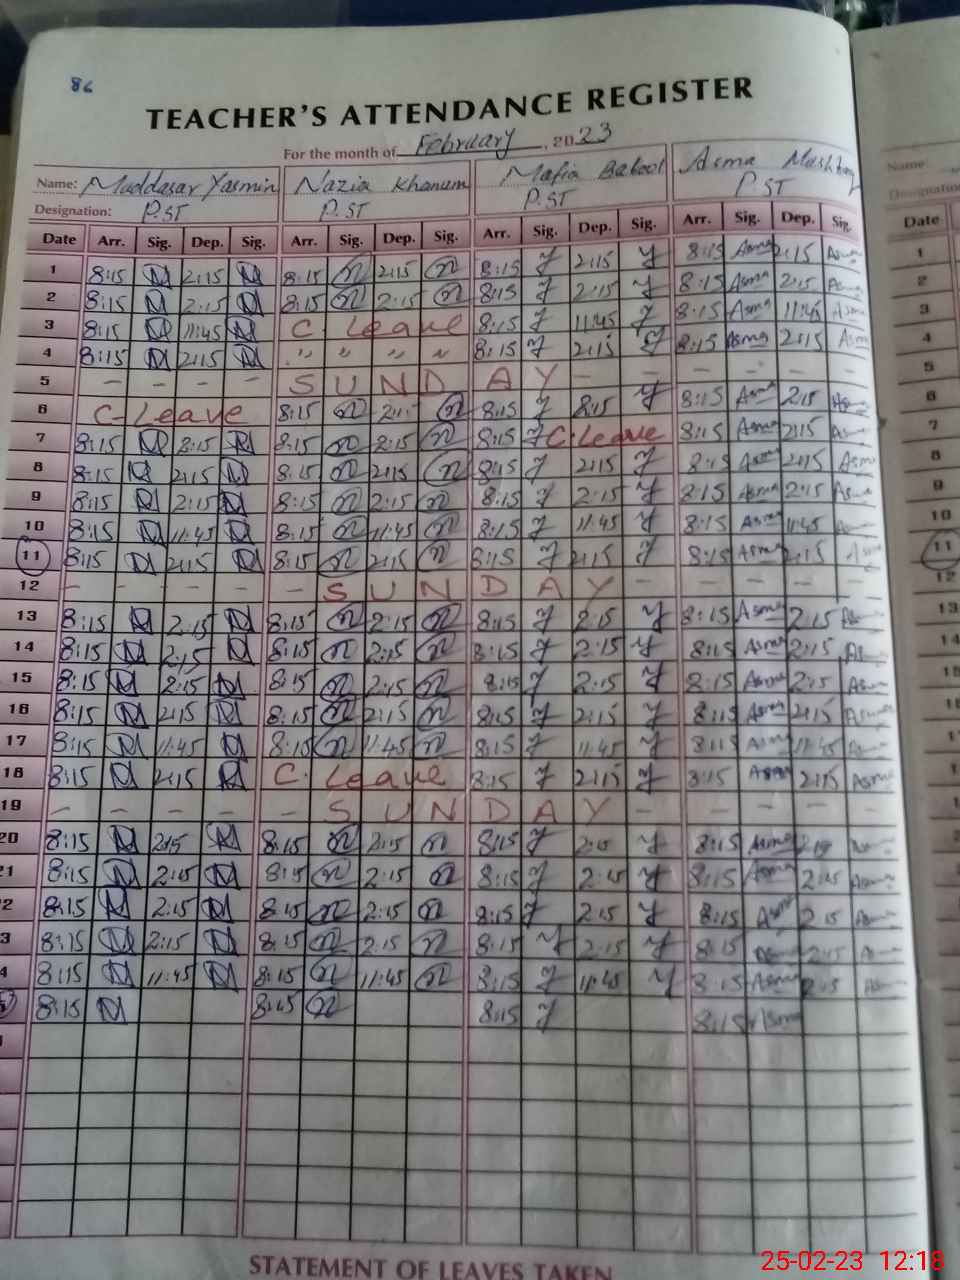 86
TEACHER'S ATTENDANCE REGISTER
For the month of February, 2023
Name: Muddasar Yasmin Nazia Khanum Mafia Batool Asma Mushtaq Name:
Designation: P.ST P.ST P.ST P.ST Designation
Date Arr. Sig. Dep. Sig. Arr. Sig. Dep. Sig. Arr. Sig. Dep. Sig. Arr. Sig. Dep. Sig. Date
1 8:15 2:15 8:15 2:15 8:15 2:15 8:15 Asma 2:15 Asma 1
2 8:15 2:15 8:15 2:15 8:15 2:15 8:15 Asma 2:15 Asma 2
3 8:15 11:45 C. Leave 8:15 11:45 8:15 Asma 11:45 Asma 3
4 8:15 2:15 " " " " 8:15 2:15 8:15 Asma 2:15 Asma 4
5 - - - - S U N D A Y - - - - - 5
6 C-Leave 8:15 2:15 8:15 8:15 8:15 Asma 2:15 Asma 6
7 8:15 8:15 8:15 8:15 8:15 C.Leave 8:15 Asma 2:15 Asma 7
8 8:15 2:15 8:15 2:15 8:15 2:15 8:15 Asma 2:15 Asma 8
9 8:15 2:15 8:15 2:15 8:15 2:15 8:15 Asma 2:15 Asma 9
10 8:15 11:45 8:15 11:45 8:15 11:45 8:15 Asma 11:45 10
11 8:15 2:15 8:15 2:15 8:15 2:15 8:15 Asma 2:15 Asma 11
12 - - - - - S U N D A Y - - - - - 12
13 8:15 2:15 8:15 2:15 8:15 2:15 8:15 Asma 2:15 13
14 8:15 2:15 8:15 2:15 8:15 2:15 8:15 Asma 2:15 14
15 8:15 2:15 8:15 2:15 8:15 2:15 8:15 Asma 2:15 Asma 15
16 8:15 2:15 8:15 2:15 8:15 2:15 8:15 Asma 2:15 Asma
17 8:15 11:45 8:15 11:45 8:15 11:45 8:15 Asma 11:45
18 8:15 2:15 C. Leave 8:15 2:15 8:15 Asma 2:15 Asma
19 - - - - - S U N D A Y - - - - -
20 8:15 2:15 8:15 2:15 8:15 2:15 8:15 Asma
21 8:15 2:15 8:15 2:15 8:15 2:15 8:15 Asma 2:15 Asma
8:15 2:15 8:15 2:15 8:15 2:15 8:15 Asma 2:15 Asma
8:15 2:15 8:15 2:15 8:15 2:15 8:15 2:15
8:15 11:45 8:15 11:45 8:15 11:45 8:15 Asma 2:15
8:15 8:15 8:15 8:15 Asma
STATEMENT OF LEAVES TAKEN
25-02-23 12:18